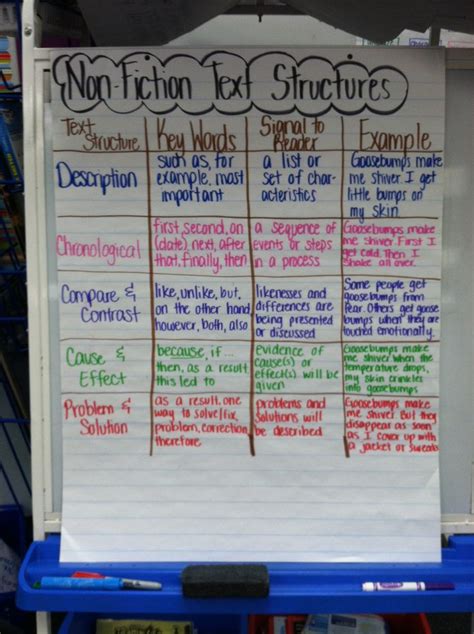 Non-Fiction Text Structures
Text
Structure
Key Words
Signal to
Reader
Example
Description
such as, for
example, most
important
a list or
set of char-
acteristics
Goosebumps make
me shiver. I get
little bumps on
my skin
Chronological
first, second, on
(date), next, after
that, finally, then
a sequence of
events or steps
in a process
Goosebumps make
me shiver. First I
get cold. Then I
shake all over.
Compare &
Contrast
like, unlike, but,
on the other hand,
however, both, also
likenesses and
differences are
being presented
or discussed
Some people get
goosebumps from
fear. Others get goose
bumps when they are
touched emotionally.
Cause &
Effect
because, if...
then, as a result,
this led to
evidence of
cause(s) or
effect(s) will be
given
Goosebumps make
me shiver when the
temperature drops,
my skin crinkles
into goosebumps
Problem &
Solution
as a result, one
way to solve/fix,
problem, correction,
therefore
problems and
solutions will
be described
Goosebumps make
me shiver. But they
disappear as soon
as I cover up with
a jacket or